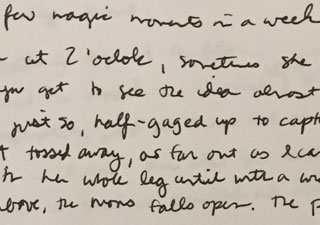 few magic moments in a week
at 2 'oclock, sometimes she
you get to see the idea almost
just so, half-gaged up to capt
tossed away, as far out as I can
her whole leg until with a
above, the moms falls open. The p